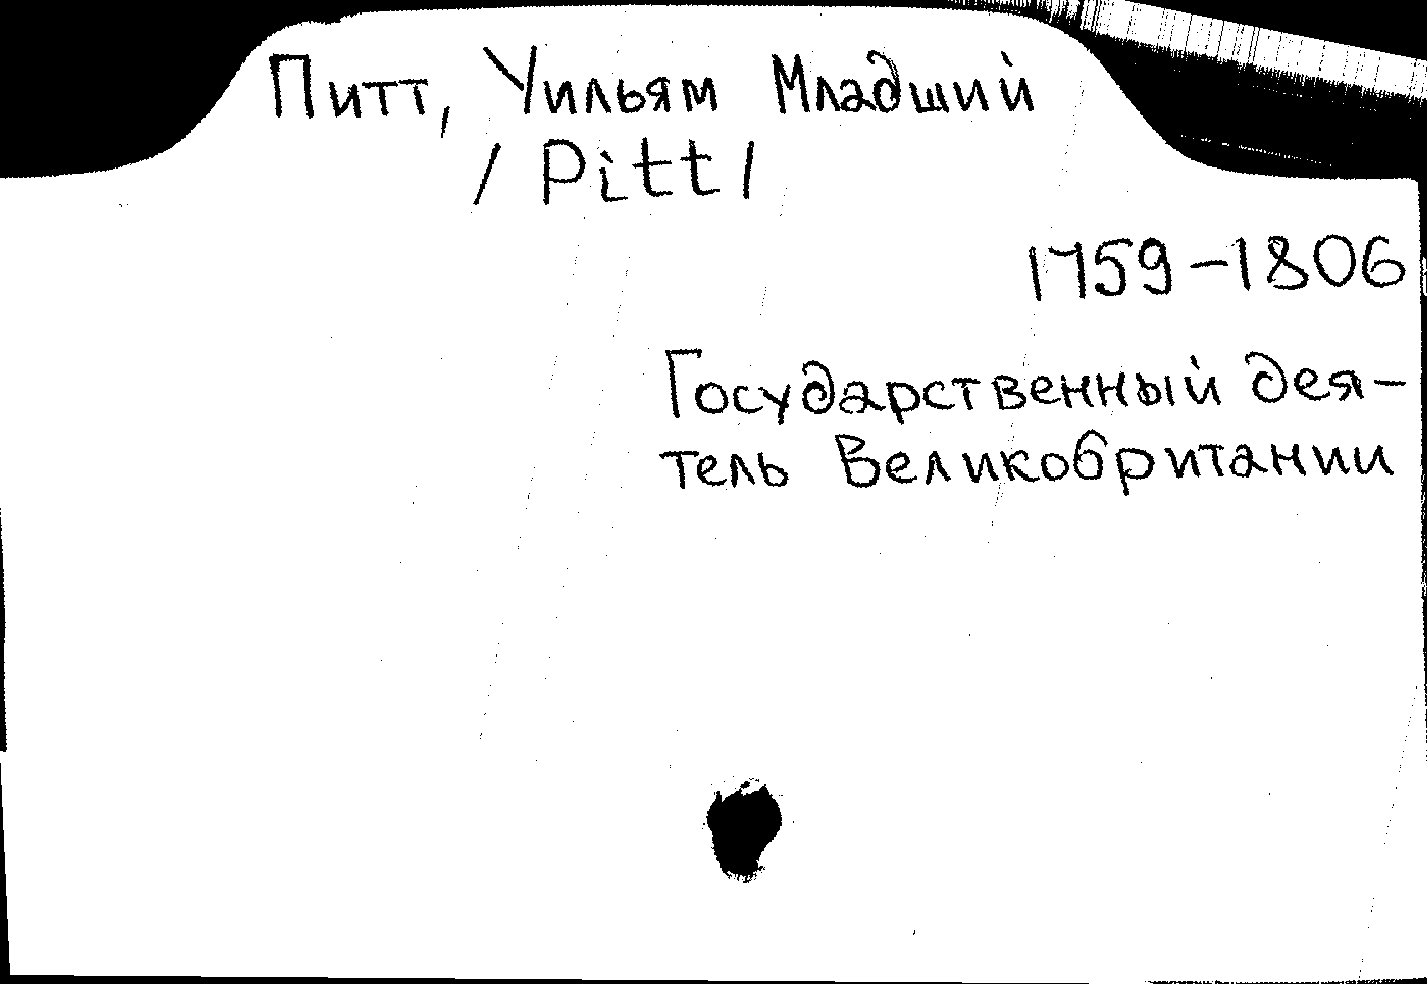 Питт, Уильям Младший
/ Pitt /
1759-1806
Государственный дея-
тель Великобритании